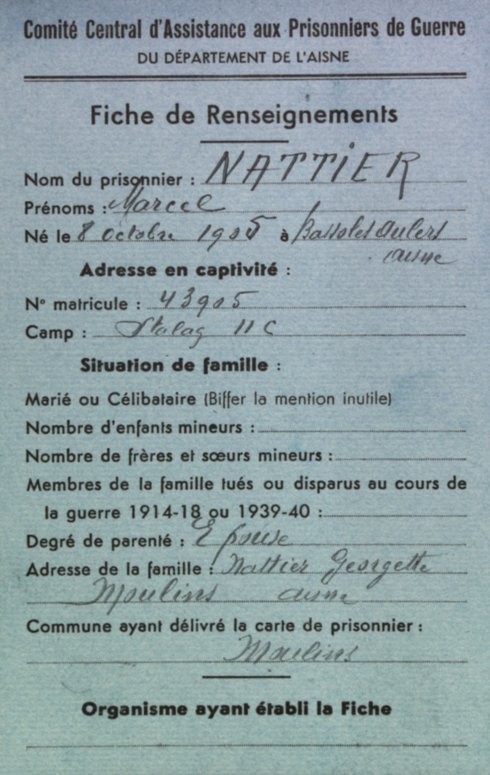 Comité Central d'Assistance aux Prisonniers de Guerre
DU DÉPARTEMENT DE L'AISNE
Fiche de Renseignements
Nom du prisonnier : NATTIER
Prénoms : Marcel
Né le 8 octobre 1905 à Bassoles Aulers
aisne
Adresse en captivité :
N° matricule : 43905
Camp : Stalag II C
Situation de famille :
Marié ou Célibataire (Biffer la mention inutile)
Nombre d'enfants mineurs :
Nombre de frères et sœurs mineurs :
Membres de la famille tués ou disparus au cours de
la guerre 1914-18 ou 1939-40 :
Degré de parenté : Epouse
Adresse de la famille : Nattier Georgette
Moulins aisne
Commune ayant délivré la carte de prisonnier :
Moulins
Organisme ayant établi la Fiche